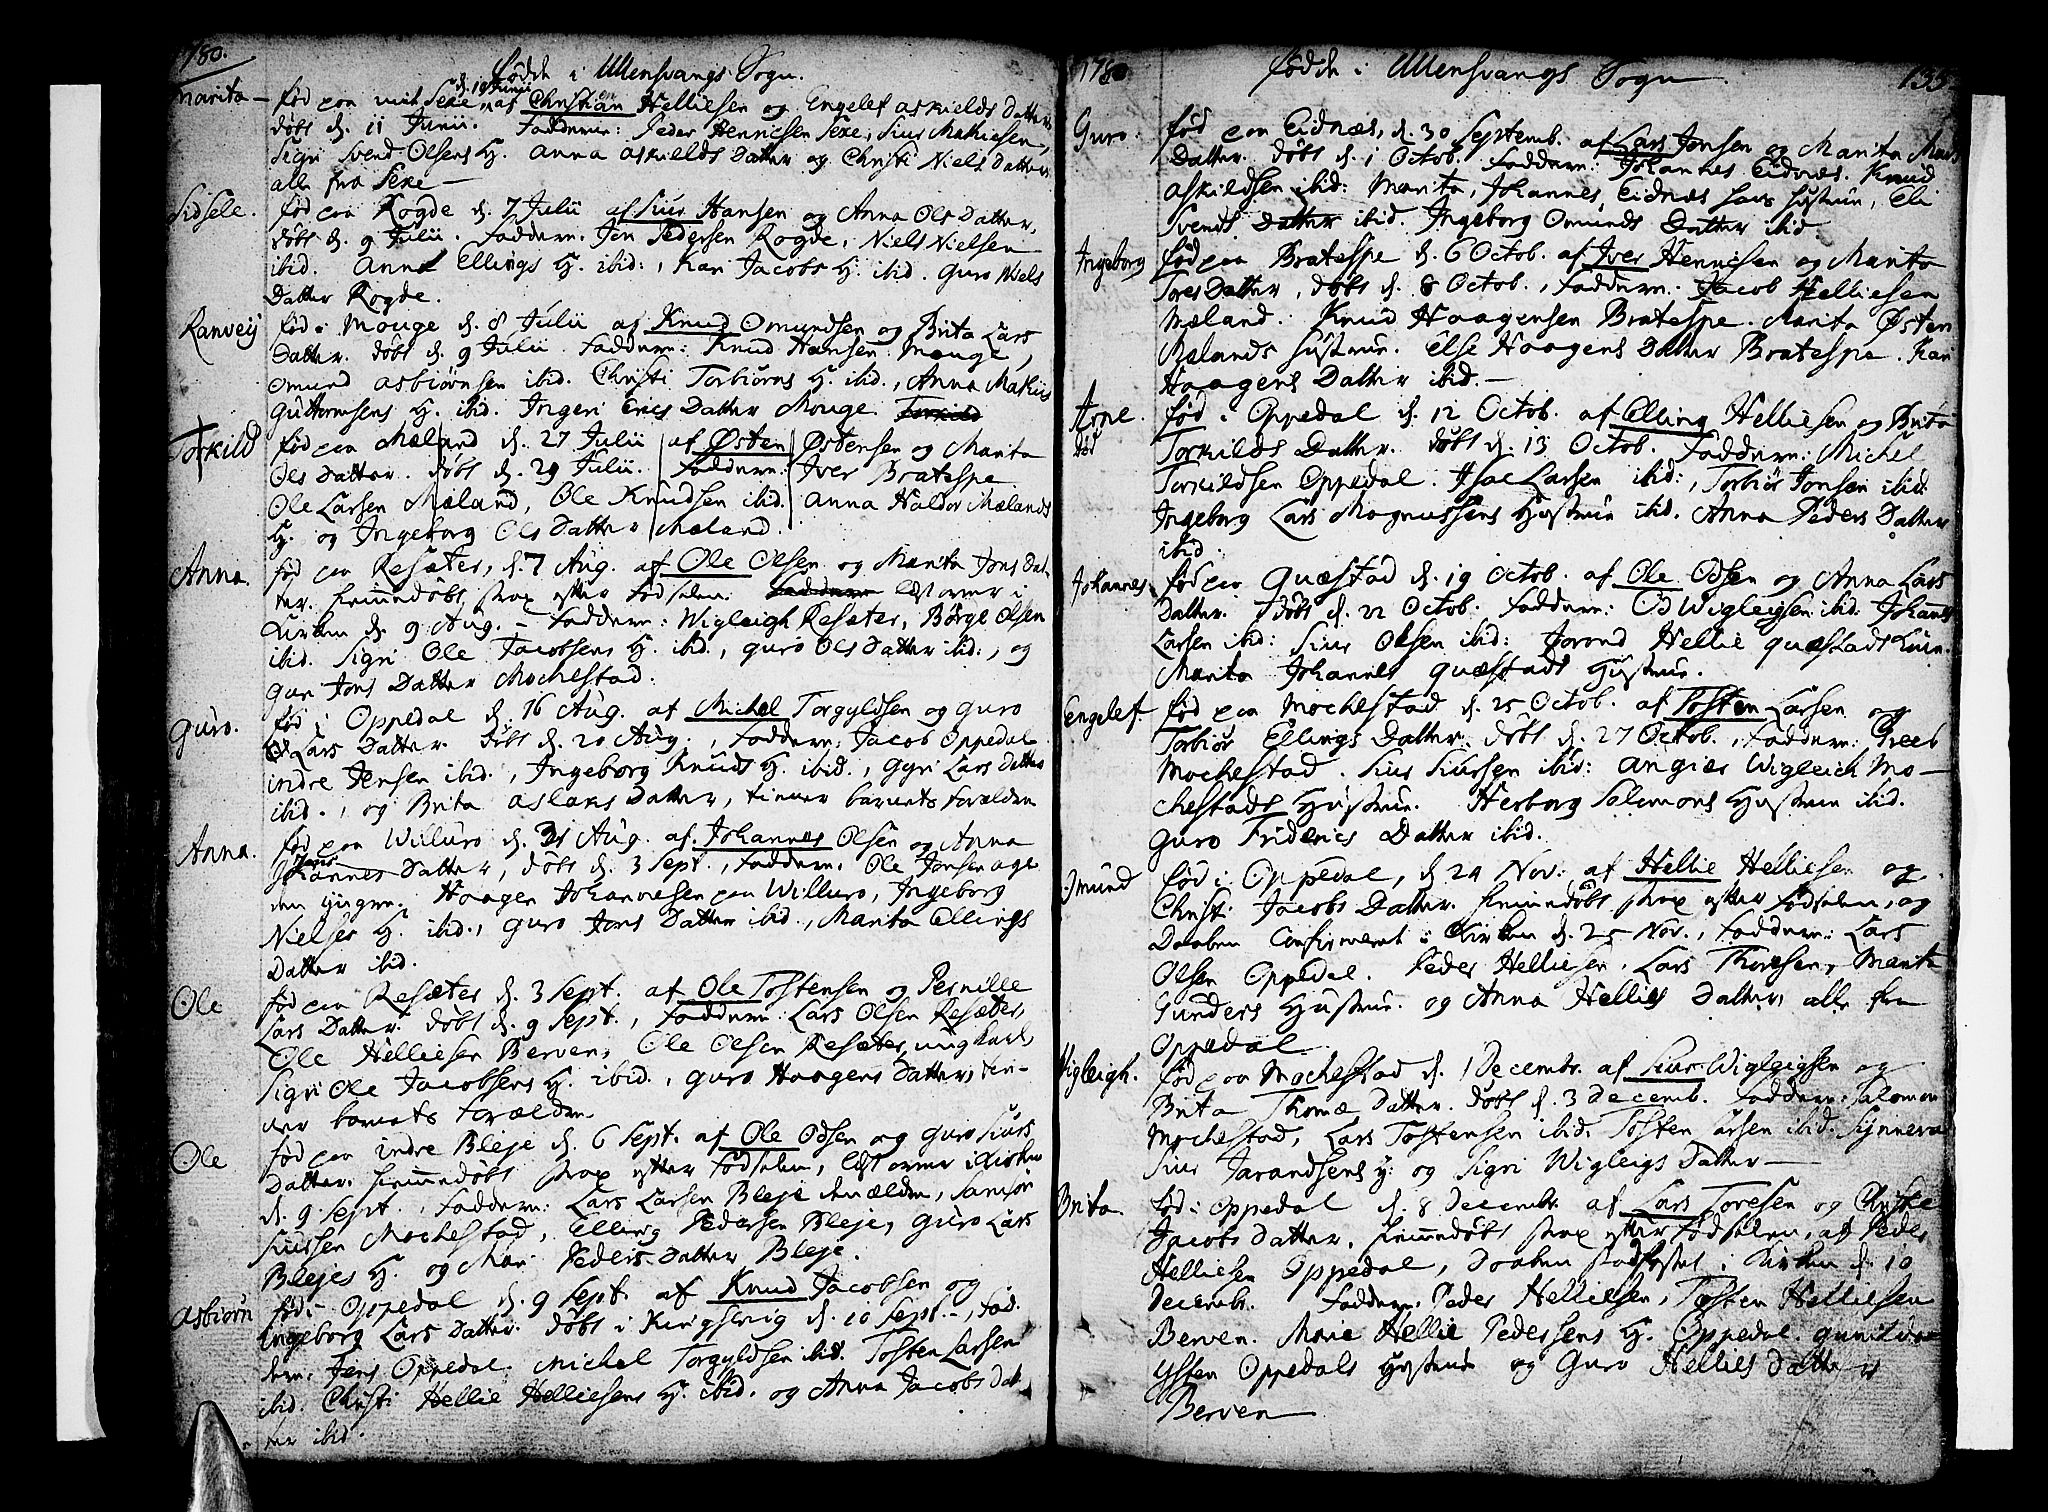 1780.
Fødde i Ullensvangs Sogn.
Marita – fød paa mit Sexe d. 10 Junii af Christian Helliesen og Engelef Askields Datter
døbt d. 11 Junii. Faddern: Peder Henricsen Sexe, Siur Mathiesen,
Sigri Svend Olsens H. Anna Askields Datter og Christi Niels Datter
alle fra Sexe –
Sidsele. fød paa Rogde d. 7 Julii af Siur Hansen og Anna Ols Datter,
døbt d. 9 Julii. Faddern. Jon Pedersen Rogde, Niels Nielsen
ibid. Anna Ellings H. ibid:, Kari Jacobs H. ibid. Guro Niels
Datter Rogde.
Ranveij fød i Mouge d. 8 Julii af Knud Omundsen og Brita Lars
Datter. døbt d. 9 Julii. Faddern: Knud Hansen Mouge,
Omund Asbiørnsen ibid. Christi Torbiørns H. ibid., Anna
Guttormsens H. ibid. Ingeri Erics Datter Mouge.
Torkild fød paa Mæland d. 27 Julii af Østen Østensen og Marita
Ols Datter. døbt d. 29 Julii. Faddern: Iver Bratespe
Ole Larsen Mæland, Ole Knudsen ibid. Anna Haldor Mælands
H. og Ingeborg Ols Datter Mæland.
Anna. fød paa Resæter, d. 7 Aug. af Ole Olsen og Marita Jons Dat-
ter. hiemmedøbt strax efter Fødselen. Faddern lyst over i
Kirken d. 9 Aug. – Faddern: Wigleigh Resæter, Børge Olsen
ibid. Sigri Ole Jacobsens H. ibid., Guro Ols Datter ibid:, og
Guri Jons Datter Mochestad.
Guro. fød i Oppedal d. 16 Aug. af Michel Torgyldsen og Guro
Lars Datter. døbt d. 20 Aug., Faddern: Jacob Oppedal
indre Jensen ibid., Ingeborg Knuds H. ibid., Gyri Lars Datter
ibid., og Brita Aslaks Datter, tiener barnets Forældre
Anna. fød paa Willuro d. 31 Aug. af Johannes Olsen og Anna
Jons
Johannes Datter, døbt d. 3 Sept., Faddern. Ole Jonsen Age
den yngre. Haagen Johannesen paa Willuro, Ingeborg
Nielses H. ibid., Guro Jons Datter ibid., Marita Ellings
Datter ibid.
Ole fød paa Resæter d. 3 Sept. af Ole Tostensen og Pernille
Lars Datter. døbt d. 9 Sept., Faddern Lars Olsen Resæter,
Ole Helliesen Berven, Ole Olsen Resæter, ungkarl,
Sigri Ole Jacobsens H. ibid., Guro Haagens Datter, tie-
ner barnets Forældre.
Ole fød paa indre Bleje d. 6 Sept. af Ole Odsen og Guro Siurs
Datter. hiemmedøbt strax efter Fødselen, lyst over i Kirken
d. 9 Sept., Faddern: Lars Larsen Bleje den ældre, Samson
Siursen Mochestad, Elling Pedersen Bleje, Guro Lars
Blejes H. og Mari Peders Datter Bleje.
Asbiørn fød i Oppedal d. 9 Sept. af Knud Jacobsen og
Ingeborg Lars Datter. døbt i Kingservig d. 10 Sept. –, Fad-
dern: Jens Oppedal, Michel Torgyldsen ibid. Tosten Larsen
ibid. Christi Hellie Helliesens H. ibid. og Anna Jacobs Dat-
ter ibid.
1780
Fødde i Ullensvangs Sogn
135
Guro. fød paa Eidnæs, d. 30 Septemb. af Lars Jonsen og Marita
Datter. døbt d. 1 Octob. Faddern: Johannes Eidnæs. Knud
Askildsen ibid: Marita, Johannes Eidnæs hans Hustrue, Eli
Svends Datter ibid. Ingeborg Omunds Datter ibid.
Ingeborg fød paa Bratespe d. 6 Octob. af Iver Henricsen og Marita
Tores Datter, døbt d. 8 Octob., Faddern: Jacob Helliesen
Mæland. Knud Haagensen Bratespe. Marita Østen
Mælands Hustrue. Else Haagens Datter Bratespe. Kari
Haagens Datter ibid. –
Arne. fød i Oppedal d. 12 Octob. af Elling Helliesen og Brita
død Torkilds Datter. døbt d. 13 Octob. Faddern: Michel
Torkildsen Oppedal. Isac Larsen ibid:, Torbiør Jonsen ibid.
Ingeborg Lars Magnussens Hustrue ibid. Anna Peders Datter
ibid.
Johannes. fød paa Quæstad d. 19 Octob. af Ole Odsen og Anna Lars
Datter. døbt d. 22 Octob. Faddern: Od Wigleigsen ibid. Johannes
Larsen ibid: Siur Olsen ibid: Jorond Hellie Quæstads
Marita Johannes Quæstads Hustrue.
Engelef. fød paa Mochestad d. 25 Octob. af Tosten Larsen og
Torbiør Ellings Datter. døbt d. 27 Octob., Faddern:
Mochestad. Siur Siursen ibid: Angier Wigleich Mo-
chestads Hustrue. Herborg Salomons Hustrue ibid.
Guro Friderics Datter ibid.
Omund fød i Oppedal, d. 24 Nov: af Hellie Helliesen og
Christi Jacobs Datter. hiemmedøbt strax efter Fødselen, og
Daaben Confirmeret i Kirken d. 25 Nov., Faddern: Lars
Olsen Oppedal. Peder Helliesen, Lars Thoresen, Marita
Gunders Hustrue og Anna Hellies Datter, alle fra
Oppedal.
Wigleigh. fød paa Mochestad d. 1 Decembr. af Siur Wigleigsen og
Brita Thomæ Datter. døbt d. 3 Decemb. Faddern: Salomon
Mochestad, Lars Tostensen ibid. Tosten Larsen ibid. Synneva
Siur Jarandsens H: og Sigri Wigleigs Datter –
Brita. fød i Oppedal d. 8 Decembr af Lars Toresen og Christi
Jacobs Datter, hiemmedøbt strax efter Fødselen, af Peder
Helliesen Oppedal, Daaben stadfæstet i Kirken d. 10
Decembr. Faddern: Peder Helliesen, Tosten Helliesen
Berven. Marie Hellie Pedersens H. Oppedal. Gunilde
Østen Oppedals Hustrue og Guro Hellies Datter
Berven